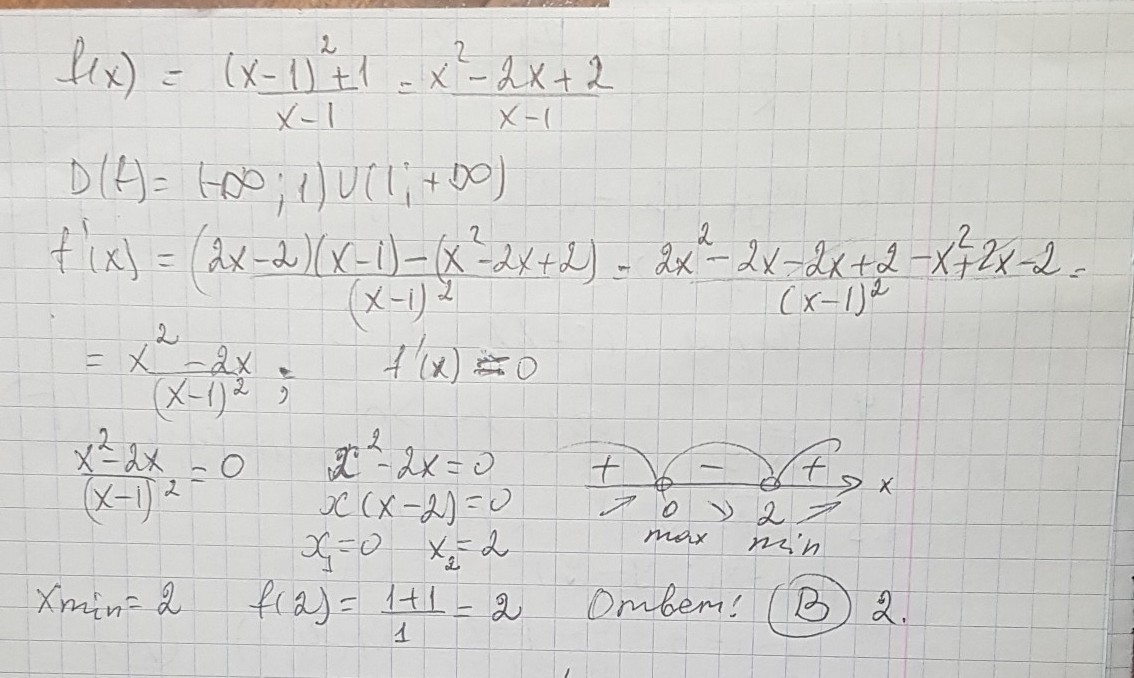 f(x) = ((x-1)²+1)/(x-1) = (x²-2x+2)/(x-1)
D(f)= (-∞; 1)∪(1; +∞)
f'(x) = ((2x-2)(x-1)-(x²-2x+2))/(x-1)² = (2x²-2x-2x+2-x²+2x-2)/(x-1)² =
= (x²-2x)/(x-1)²; f'(x) = 0
(x²-2x)/(x-1)² = 0 x²-2x=0 + - + x
x(x-2)=0 0 2
x₁=0 x₂=2 max min
xmin=2 f(2)= (1+1)/1 = 2 Ответ: В 2.